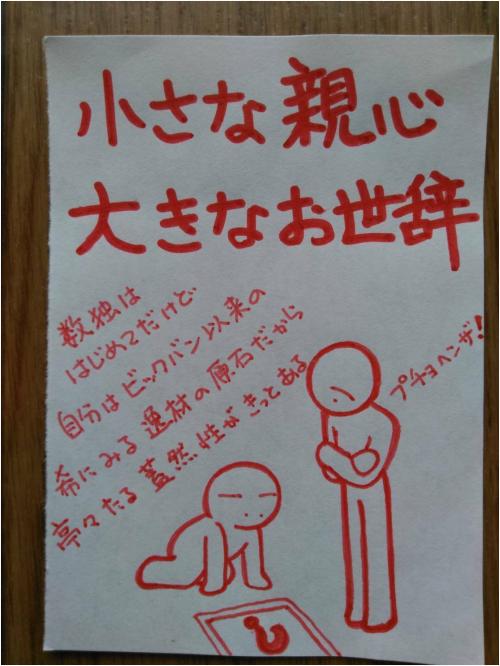 小さな親心
大きなお世辞
数独は
はじめてだけど
自分はビックバン以来の
希にみる逸材の原石だから
亭々たる蓋然性がきっとある
プチョヘンザ!
?